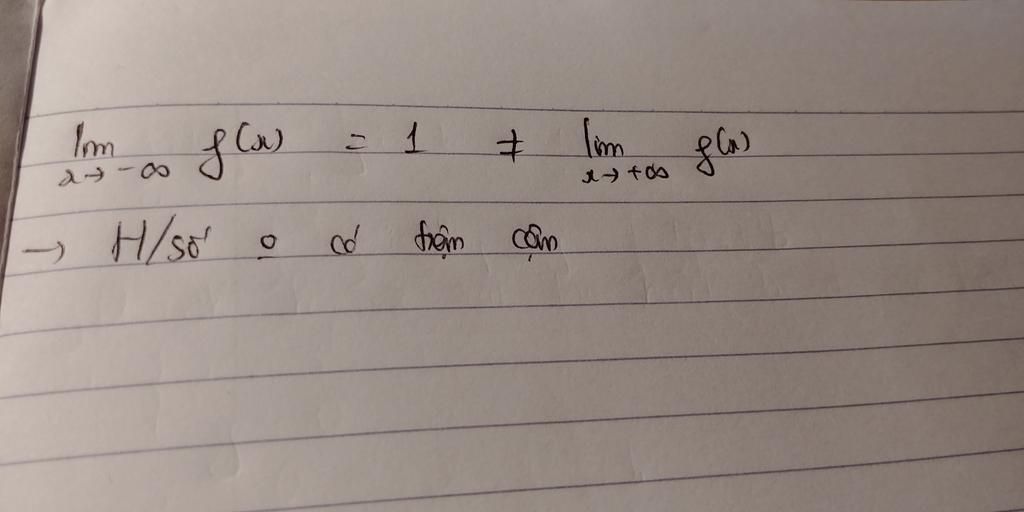 lim x→-∞ f(x) = 1 ≠ lim x→+∞ f(x)
→ H/số o có tiệm cận